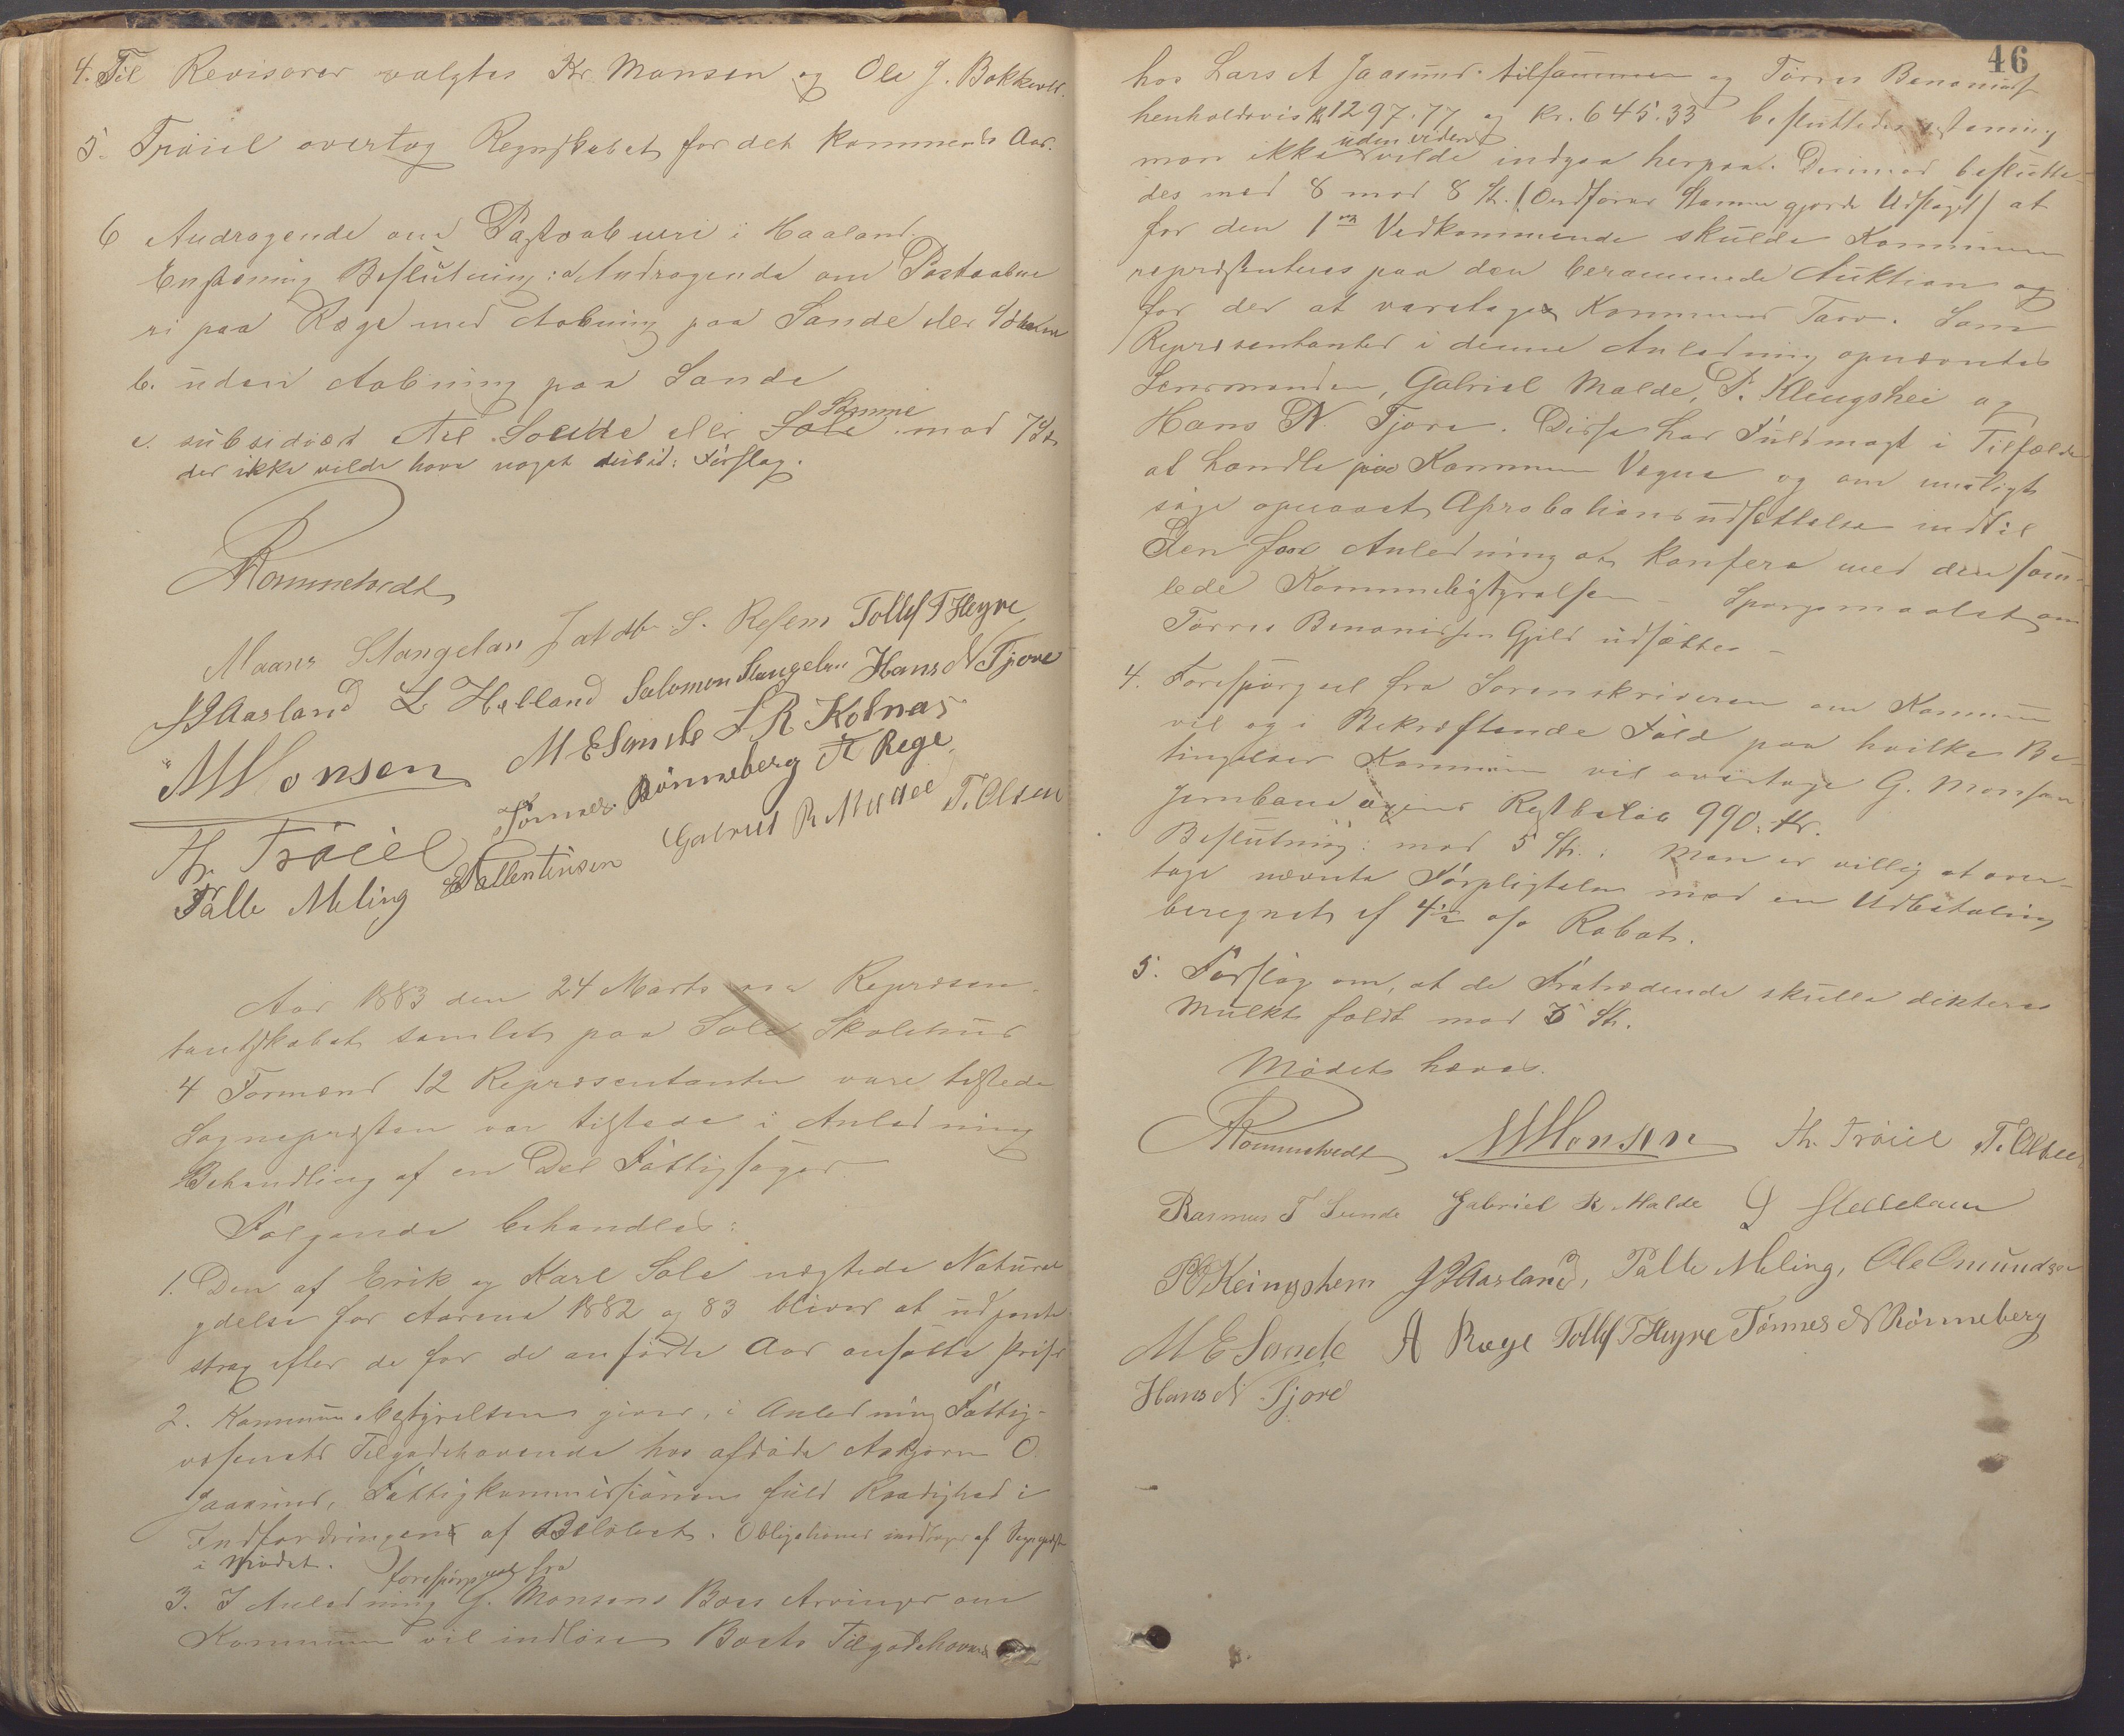 4. Til Revisorer valgtes Kr. Monsen og Ole J. Bokkevold.
5. Trøiel overtog Regnskabet for det kommende Aar.
6 Andragende om Postaabneri i Haaland.
Enstemmig Beslutning: a Andragende om Postaabne
ri paa Rege med Aabning paa Sande eller Sømme
b. uden Aabning paa Sande
c. subsidiært til Sande eller Sola Sømme mod 7 St.
der ikke vilde have noget subsid: Forslag.
Rommetvedt
Maans Stangelan Jakob S. Resem Tollef T Heyre
J J Aasland L Helland Salomon Stangelan Hans N Tjore
M Monsen M E Sande S R Kolnas
Th. Trøiel Tønnes Rønneberg A Rege
Palle Meling E Vallentinsen Gabriel R Malde T. Olsen
Aar 1883 den 24 Marts var Repræsen-
tantskabet samlet paa Sola Skolehus
4 Formænd 12 Repræsentanter vare tilstede
Sognepresten var tilstede i Anledning
Behandling af en Del Fattigsager.
Følgende behandles:
1. Den af Erik og Karl Sola nægtede Natural
ydelse for Aarene 1882 og 83 bliver at udpante
strax efter de for de anførte Aar ansatte Priser
2. Kommunebestyrelsen giver, i Anledning Fattig-
væsenets Tilgodehavende hos afdøde Asbjørn O.
Jaasund, Fattigkommissionen fuld Raadighed i
Indfordringen af Beløbet. Obligationen modtages af Sognepresten
i Mødet.
3. I Anledning forespørgsel fra G. Monsens Boes Arvinger om
Kommunen vil indløse Boets Tilgodehavende
46
hos Lars A Jaasund tilsammen og Tørres Benonisen
henholdsvis Kr 1297.77 og Kr. 645.33 besluttedes enstemmig
man ikke uden videre vilde indgaa herpaa. Derimod beslutte-
des med 8 mod 8 St. (Ordfører Stemme gjorde Udslaget) at
for den 1ste Vedkommende skulde Kommunen
repræsenteres paa den berammede Auktion og
for der at varetage Kommunens Tarv. Som
Repræsentanter i denne Anledning opnævntes
Lensmanden, Gabriel Malde, P. Klengshei og
Hans N. Tjore. Disse har Fuldmagt i Tilfælde
at handle paa Kommunens Vegne og om muligt
søge opnaaet Aprobationsudsettelse indtil
den faar Anledning at konferere med den sam-
lede Kommunebestyrelse – Spørgsmaalet om
Tørres Benonissen Gjeld udsættes –
4. Forespørgsel fra Sorenskriveren om Kommunen
vil og i Bekræftende Fald paa hvilke Be-
tingelser Kommunen vil overtage G. Monsens
Jernbane Restbeløb 990. Kr.
Beslutning: mod 5 St.: Man er villig at over-
tage nævnte Forpligtelse mod en Udbetaling
beregnet af 4½ o/o Rabat.
5. Forslag om, at de Fratrædende skulle dikteres
Mulkt faldt mod 5 St.
Mødet hæves.
Rommetvedt M Monsen Th. Trøiel T. Olsen
Rasmus T Sunde Gabriel R. Malde
J J Aasland, Palle Meling, Ole Omundsen
M E Sande A Rege Tollef T Heyre Tønnes N Rønneberg
Hans N Tjore